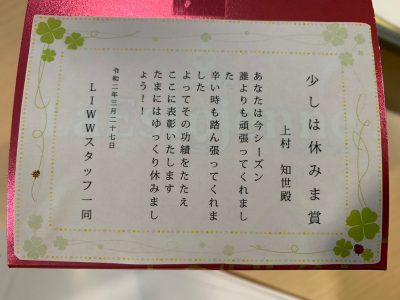 少しは休みま賞
上村 知世殿
あなたは今シーズン
誰よりも頑張ってくれまし
た
辛い時も踏ん張ってくれま
した
よってその功績をたたえ
ここに表彰いたします
たまにはゆっくり休みまし
ょう！！
令和二年三月二十七日
LIWWスタッフ一同